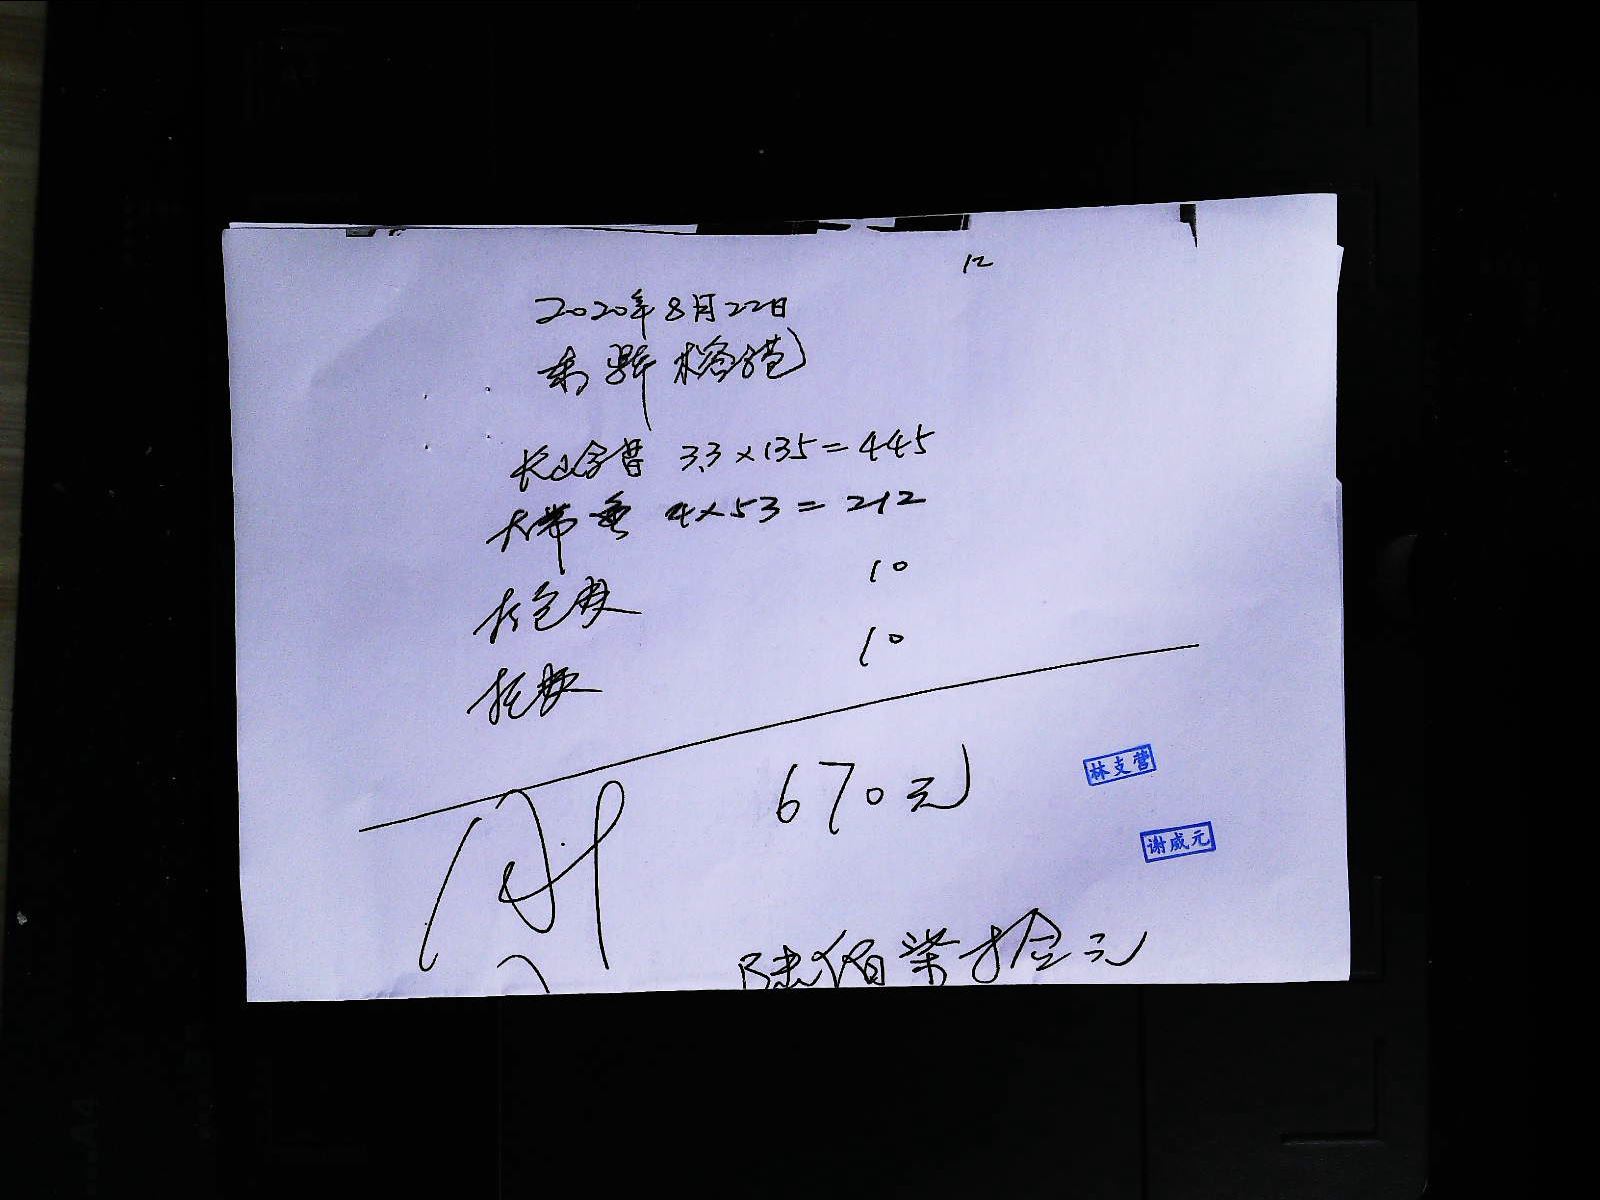 12
2020年8月22日
3.3×135=445
大带鱼 4×53=212
打包费 10
10
670元
林支营
谢威元
陆佰柒拾元